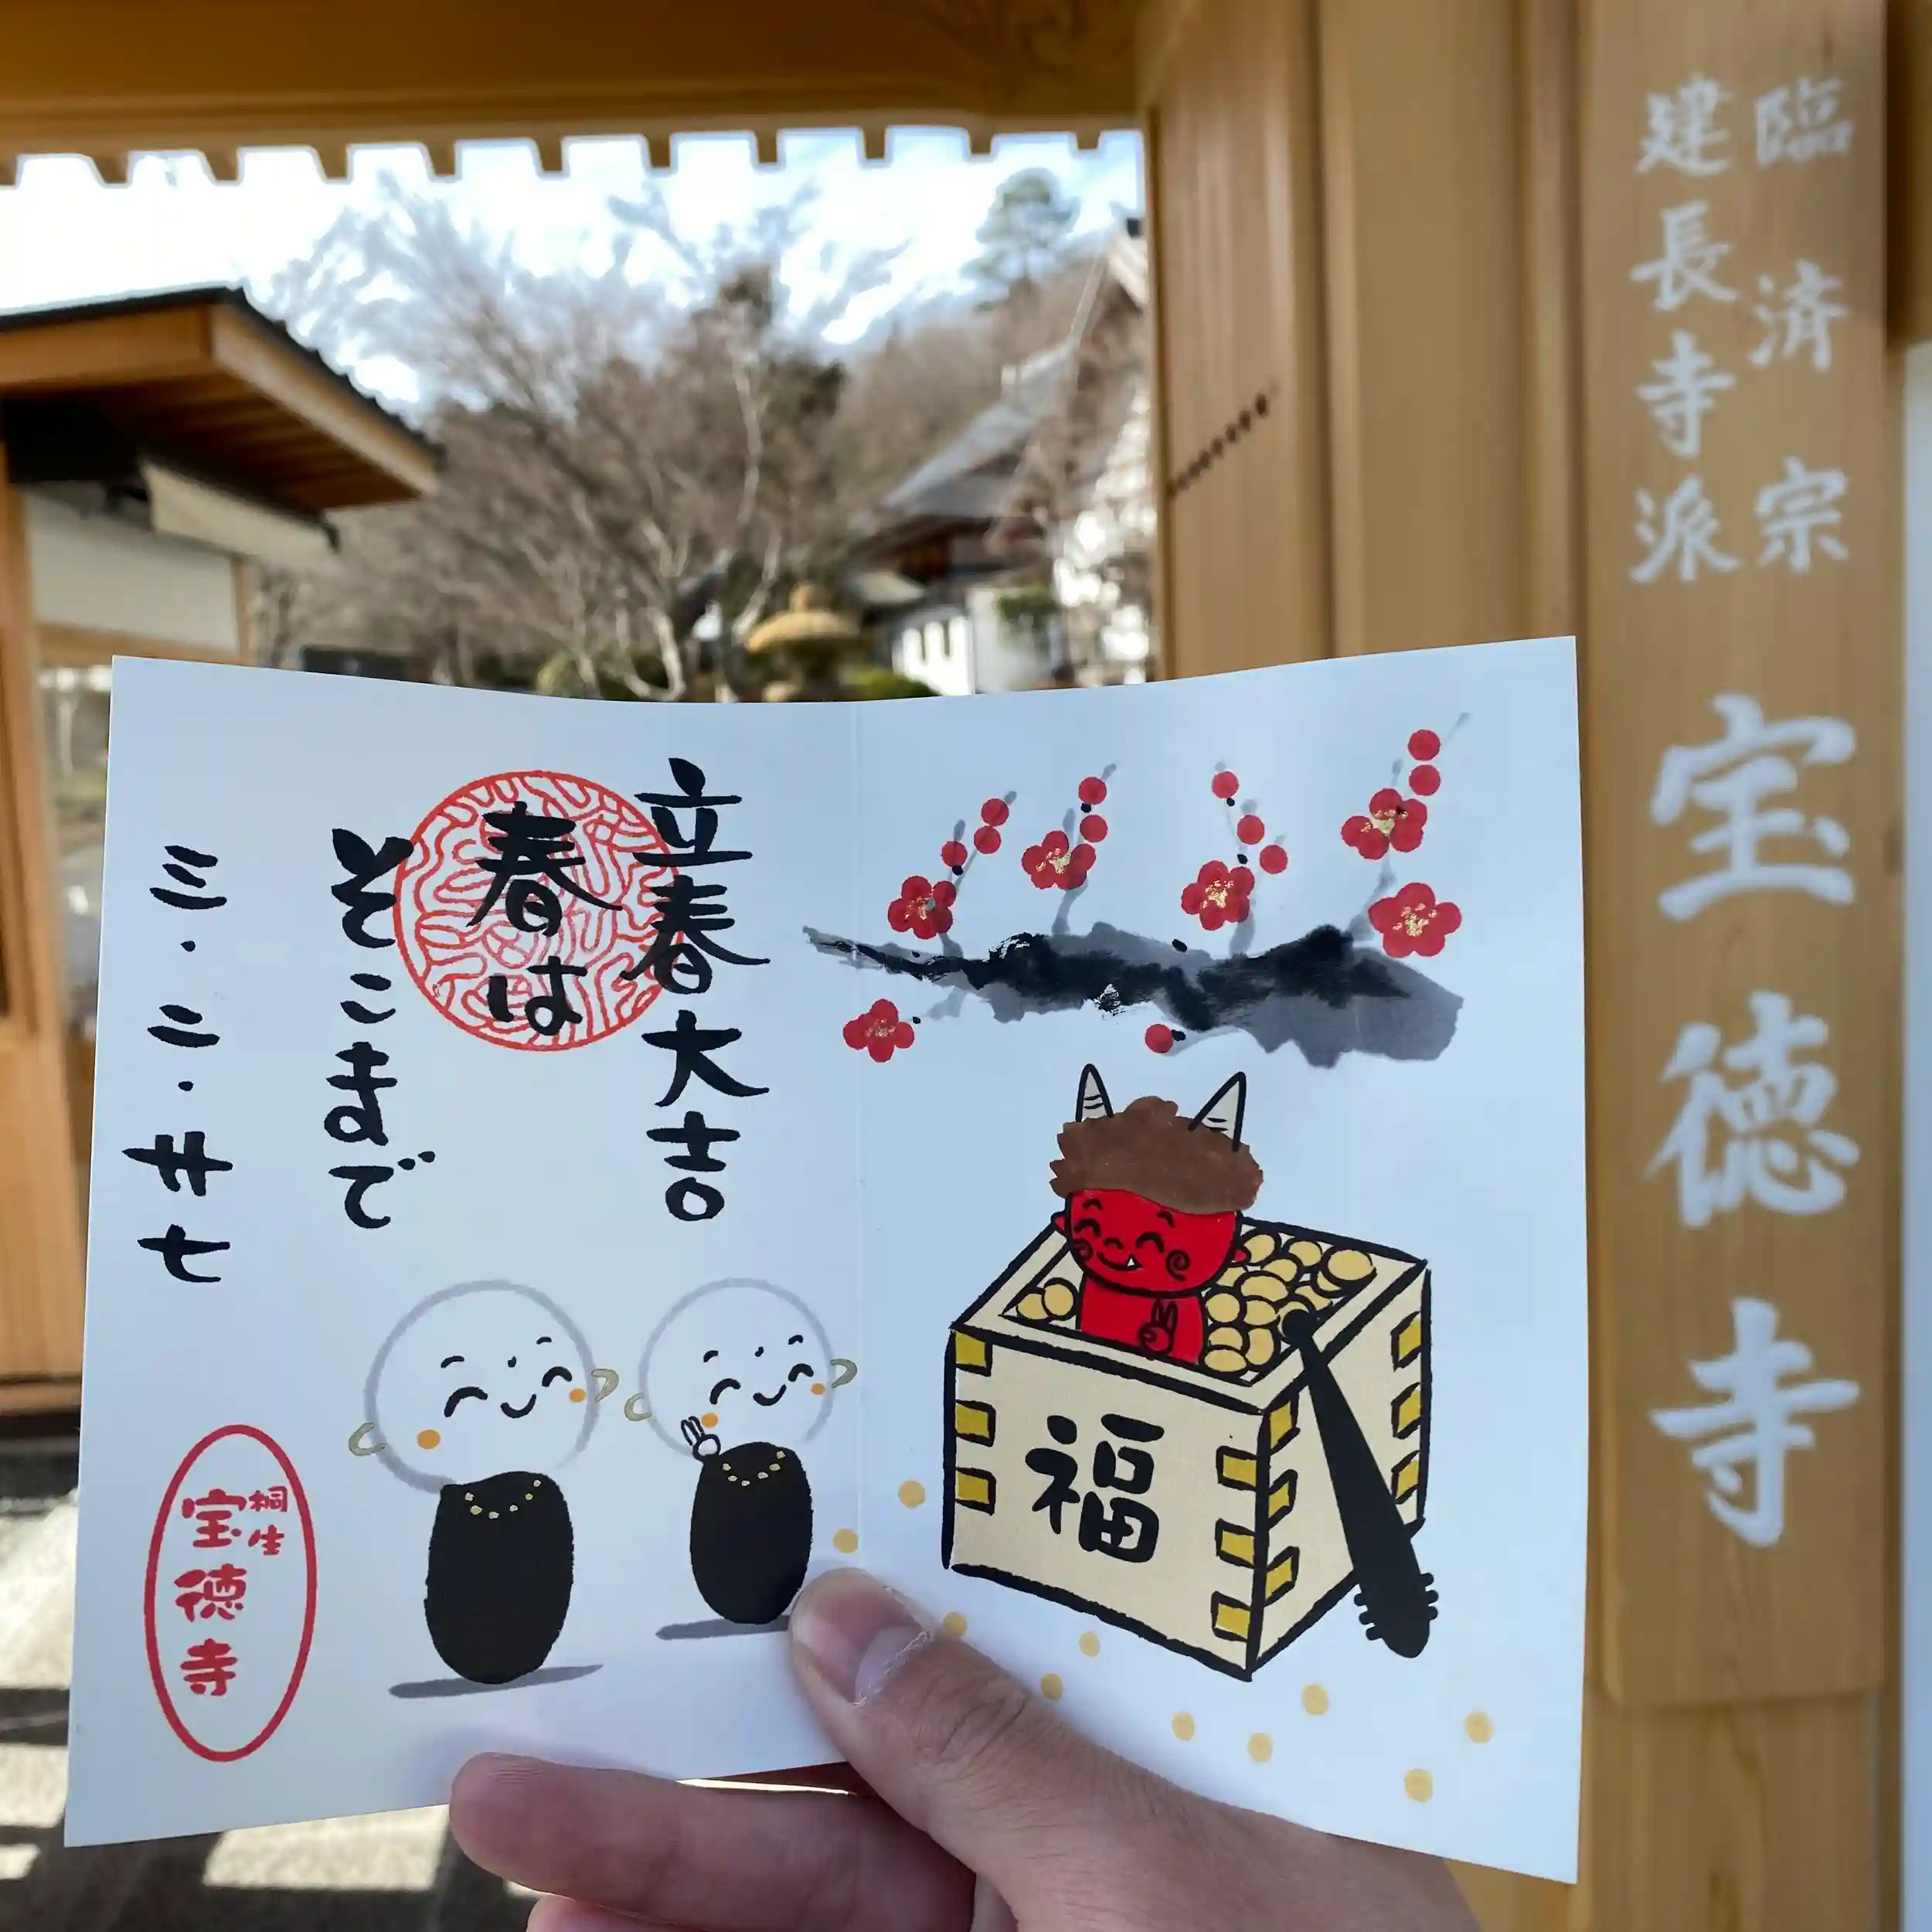 臨済宗
建長寺派
宝徳寺
立春大吉
春は
そこまで
三・二・廿七
福
桐生
宝徳寺